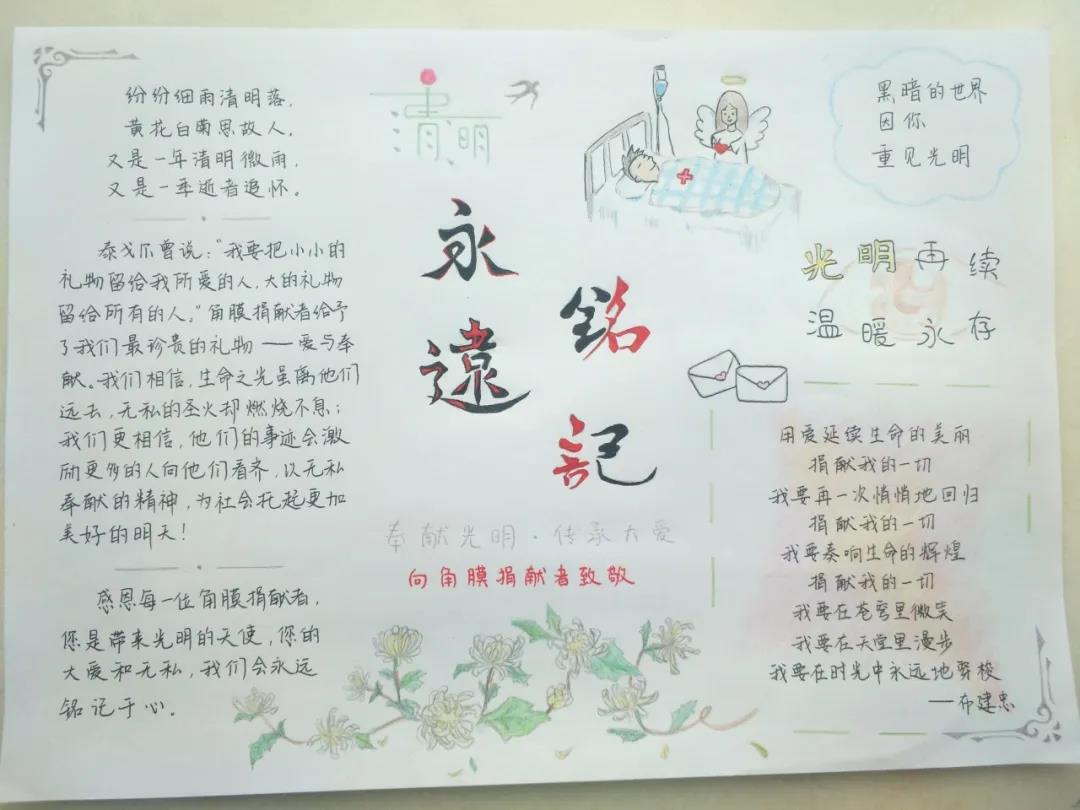 纷纷细雨清明落，
黄花白菊思故人，
又是一年清明微雨，
又是一季逝者追怀。
泰戈尔曾说："我要把小小的
礼物留给我所爱的人，大的礼物
留给所有的人。"角膜捐献者给予
了我们最珍贵的礼物——爱与奉
献。我们相信，生命之光虽离他们
远去，无私的圣火却燃烧不息；
我们更相信，他们的事迹会激
励更多的人向他们看齐，以无私
奉献的精神，为社会托起更加
美好的明天！
感恩每一位角膜捐献者，
您是带来光明的天使，您的
大爱和无私，我们会永远
铭记于心。
清明
永遠
銘記
奉献光明·传承大爱
向角膜捐献者致敬
黑暗的世界
因你
重见光明
光明再续
温暖永存
用爱延续生命的美丽
捐献我的一切
我要再一次悄悄地回归
捐献我的一切
我要奏响生命的辉煌
捐献我的一切
我要在苍穹里微笑
我要在天堂里漫步
我要在时光中永远地穿梭
——布建忠